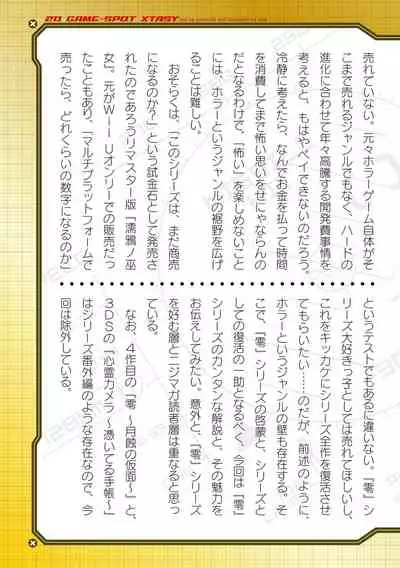 2D GAME-SPOT XTASY
売れていない。元々ホラーゲーム自体がそ
こまで売れるジャンルでもなく、ハードの
進化に合わせて年々高騰する開発費事情を
考えると、もはやペイできないのだろう。
冷静に考えたら、なんでお金を払って時間
を消費してまで怖い思いをせにゃならんの
だとなるわけで、「怖い」を楽しめないこと
には、ホラーというジャンルの裾野を広げ
ることは難しい。
おそらくは、「このシリーズは、まだ商売
になるのか?」という試金石として発売さ
れたのであろうリマスター版「濡鴉ノ巫
女」。元がWiiUオンリーでの販売だっ
たこともあり、「マルチプラットフォームで
売ったら、どれくらいの数字になるのか」
というテストでもあるに違いない。「零」シ
リーズ大好きっ子としては売れてほしいし、
これをキッカケにシリーズ全作を復活させ
てもらいたい……のだが、前述のように、
ホラーというジャンルの壁も存在する。そ
こで、「零」シリーズの啓蒙と、シリーズと
しての復活の一助となるべく、今回は「零」
シリーズのカンタンな解説と、その魅力を
お伝えしてみたい。意外と、「零」シリーズ
を好む層と二ジマガ読者層は重なると思っ
ている。
なお、4作目の「零 ~月蝕の仮面~」と、
3DSの「心霊カメラ ~憑いてる手帳~」
はシリーズ番外編のような存在なので、今
回は除外している。